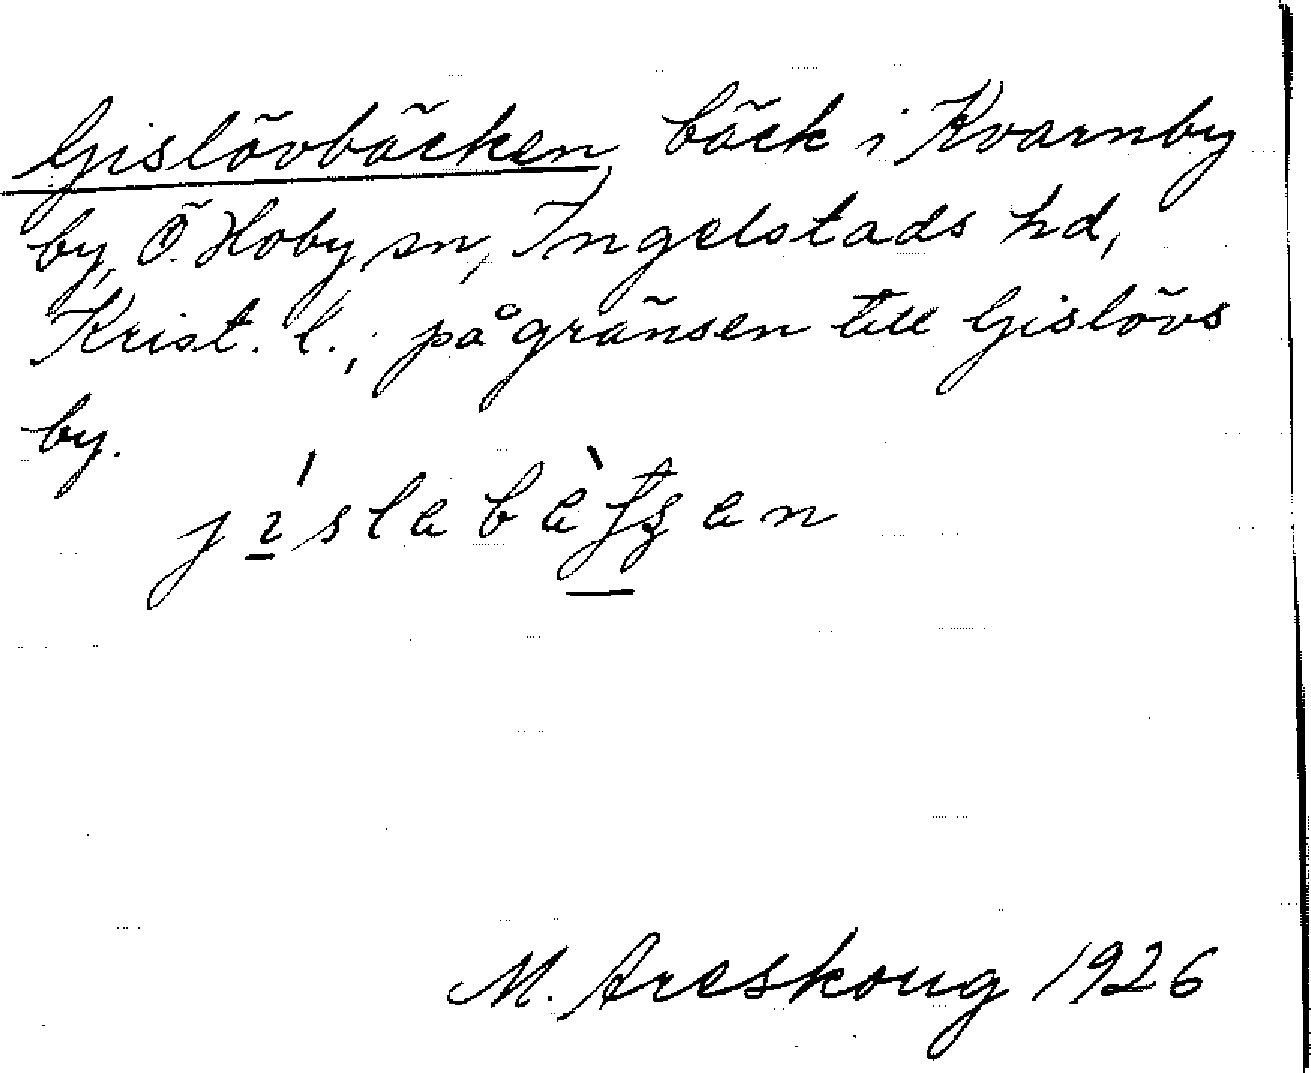 Gislövbäcken, bäck i Kvarnby
by, Ö. Hoby sn, Ingelstads hd,
Krist. l.; på gränsen till Gislövs
by.
M. Areskoug 1926